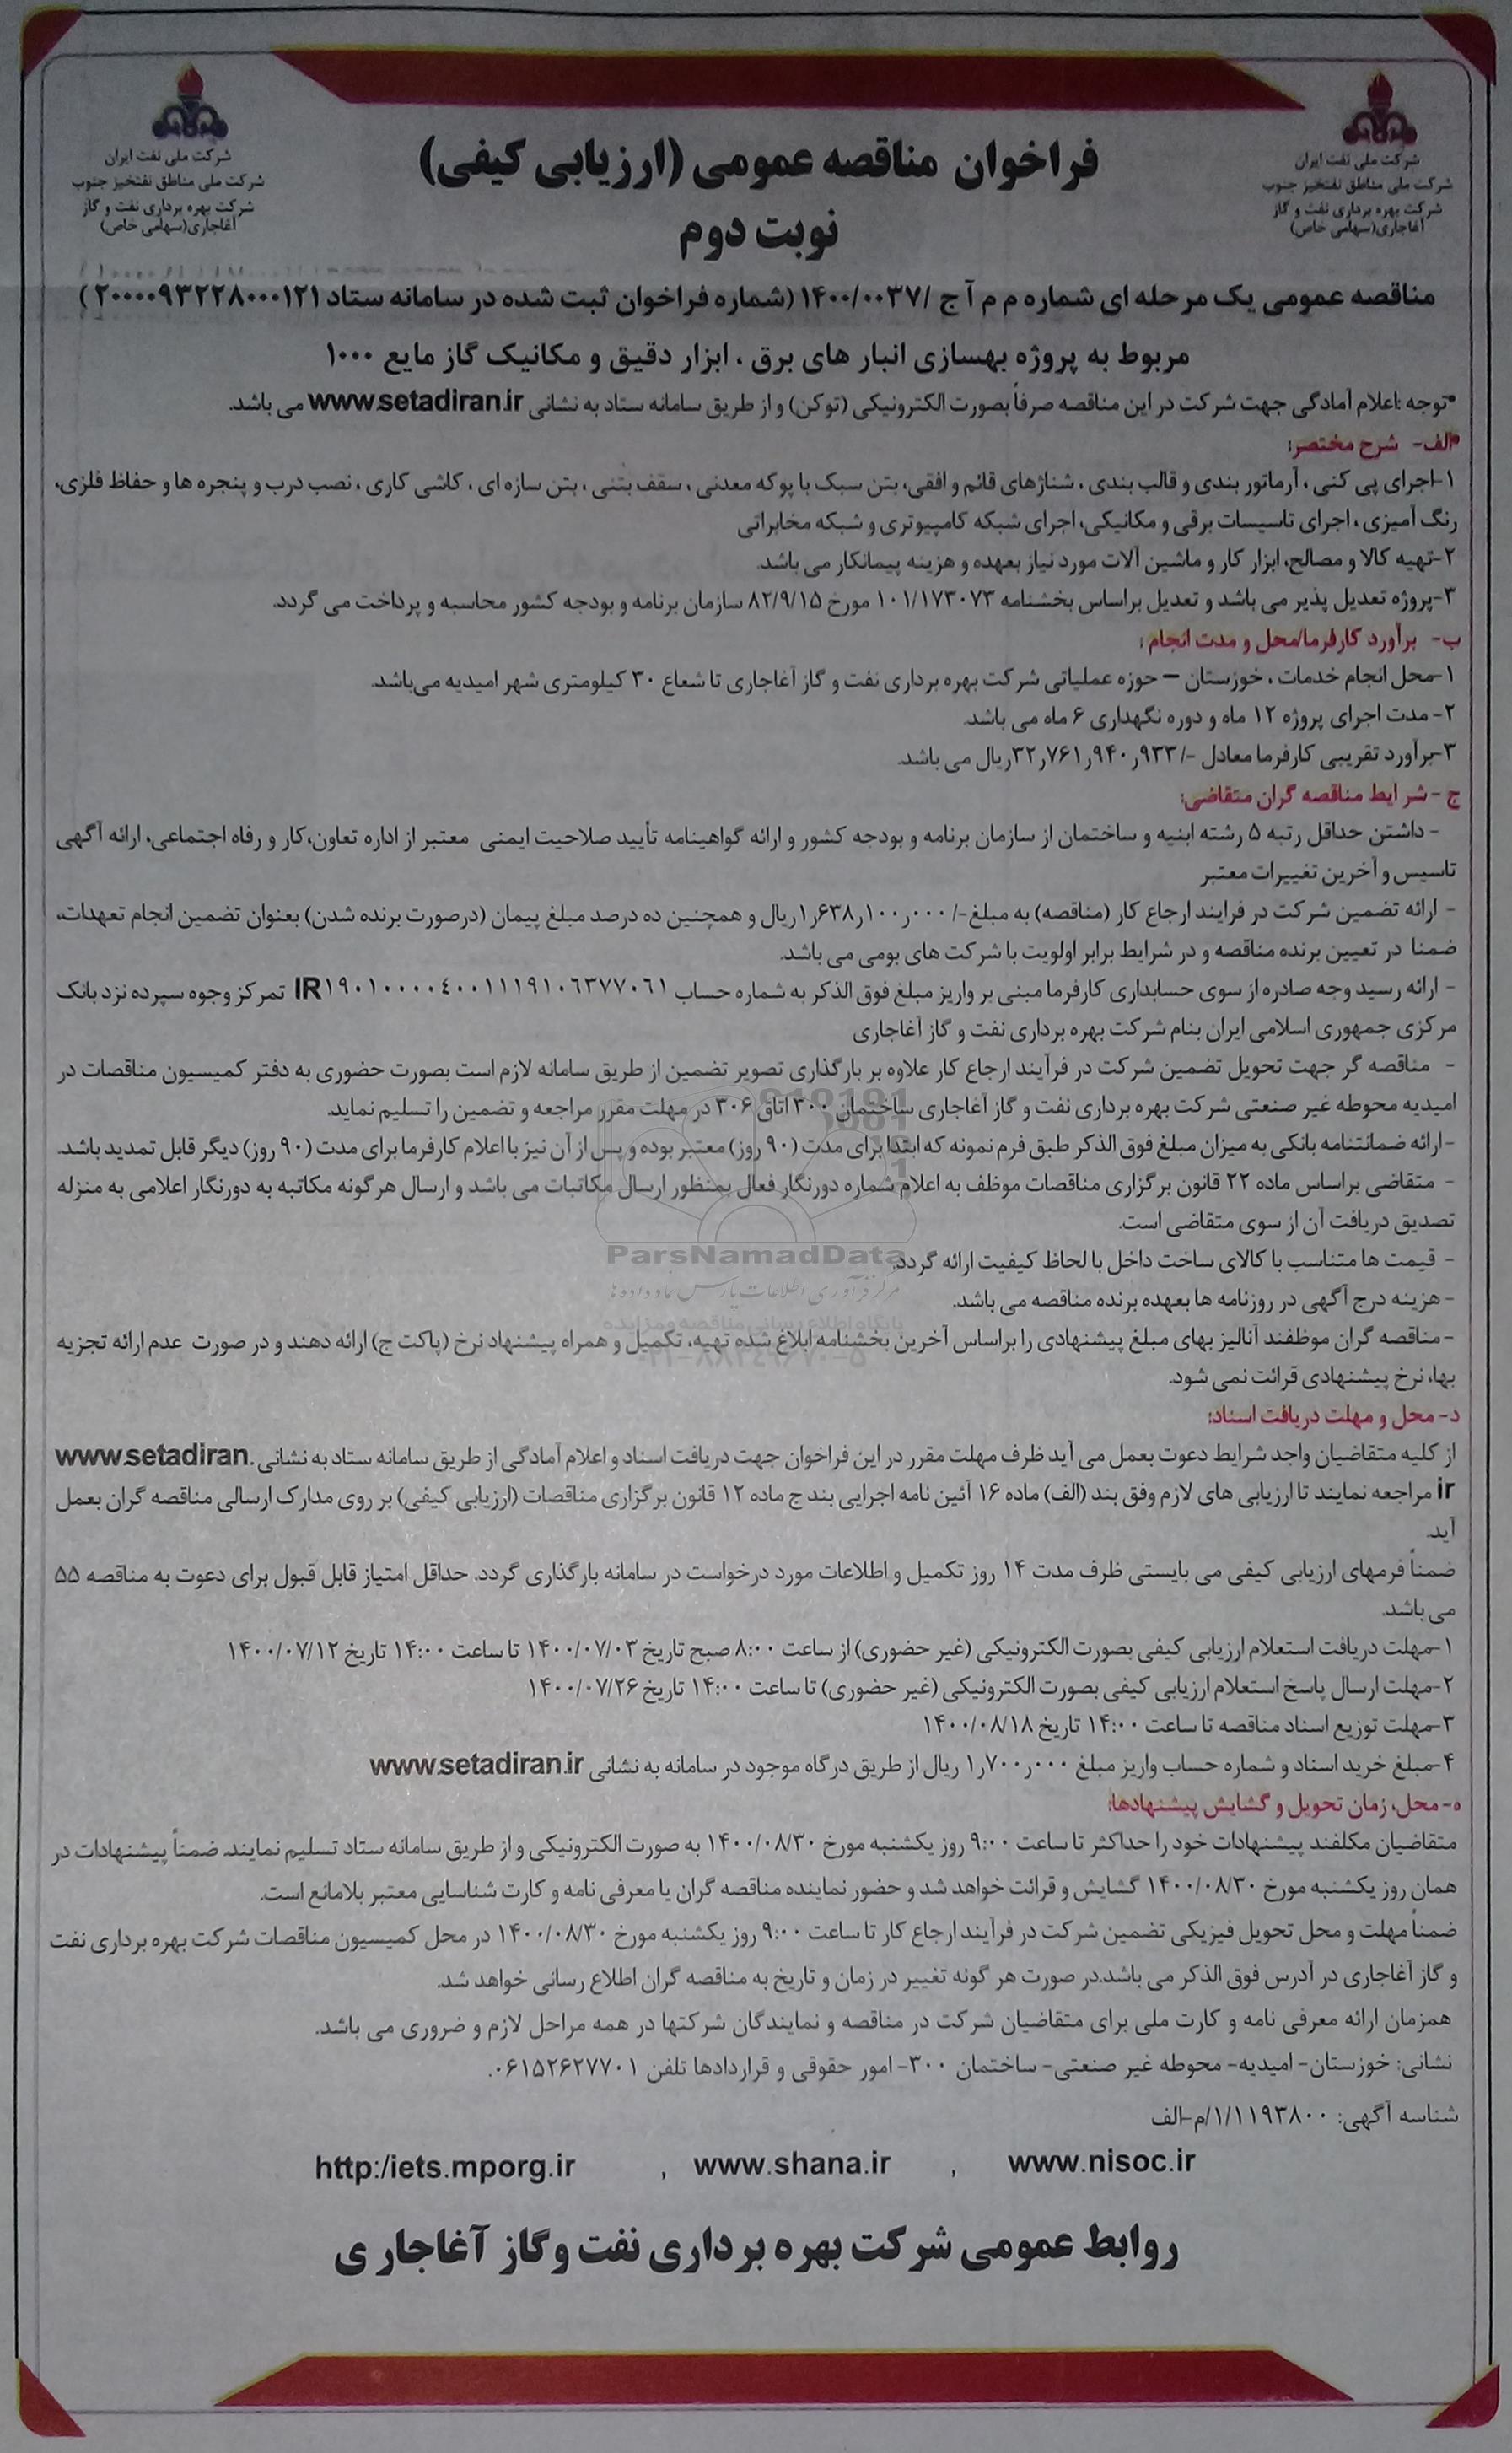 شرکت ملی نفت ایران
شرکت ملی مناطق نفتخیز جنوب
شرکت بهره برداری نفت و گاز
آغاجاری(سهامی خاص)
شرکت ملی نفت ایران
شرکت ملی مناطق نفتخیز جنوب
شرکت بهره برداری نفت و گاز
آغاجاری(سهامی خاص)
فراخوان مناقصه عمومی (ارزیابی کیفی)
نوبت دوم
مناقصه عمومی یک مرحله ای شماره م م آ ج /۱۴۰۰/۰۰۳۷ (شماره فراخوان ثبت شده در سامانه ستاد ۲۰۰۰۰۹۳۲۲۸۰۰۰۱۲۱ )
مربوط به پروژه بهسازی انبار های برق ، ابزار دقیق و مکانیک گاز مایع ۱۰۰۰
*توجه :اعلام آمادگی جهت شرکت در این مناقصه صرفاً بصورت الکترونیکی (توکن) و از طریق سامانه ستاد به نشانی www.setadiran.ir می باشد.
*الف- شرح مختصر:
۱-اجرای پی کنی ، آرماتور بندی و قالب بندی ، شناژهای قائم و افقی، بتن سبک با پوکه معدنی ، سقف بتنی ، بتن سازه ای ، کاشی کاری ، نصب درب و پنجره ها و حفاظ فلزی،
رنگ آمیزی ، اجرای تاسیسات برقی و مکانیکی، اجرای شبکه کامپیوتری و شبکه مخابراتی
۲-تهیه کالا و مصالح، ابزار کار و ماشین آلات مورد نیاز بعهده و هزینه پیمانکار می باشد.
۳-پروژه تعدیل پذیر می باشد و تعدیل براساس بخشنامه ۱۰۱/۱۷۳۰۷۳ مورخ ۸۲/۹/۱۵ سازمان برنامه و بودجه کشور محاسبه و پرداخت می گردد.
ب- برآورد کارفرما/محل و مدت انجام :
۱-محل انجام خدمات ، خوزستان – حوزه عملیاتی شرکت بهره برداری نفت و گاز آغاجاری تا شعاع ۳۰ کیلومتری شهر امیدیه می‌باشد.
۲- مدت اجرای پروژه ۱۲ ماه و دوره نگهداری ۶ ماه می باشد.
۳-برآورد تقریبی کارفرما معادل -/۳۲٫۷۶۱٫۹۴۰٫۹۳۳ریال می باشد.
ج - شرایط مناقصه گران متقاضی:
- داشتن حداقل رتبه ۵ رشته ابنیه و ساختمان از سازمان برنامه و بودجه کشور و ارائه گواهینامه تأیید صلاحیت ایمنی معتبر از اداره تعاون،کار و رفاه اجتماعی، ارائه آگهی
تاسیس و آخرین تغییرات معتبر
- ارائه تضمین شرکت در فرایند ارجاع کار (مناقصه) به مبلغ-/۱٫۶۳۸٫۱۰۰٫۰۰۰ریال و همچنین ده درصد مبلغ پیمان (درصورت برنده شدن) بعنوان تضمین انجام تعهدات،
ضمنا در تعیین برنده مناقصه و در شرایط برابر اولویت با شرکت های بومی می باشد.
- ارائه رسید وجه صادره از سوی حسابداری کارفرما مبنی بر واریز مبلغ فوق الذکر به شماره حساب IR۱۹۰۱۰۰۰۰۴۰۰۱۱۱۹۱۰۶۳۷۷۰۶۱ تمرکز وجوه سپرده نزد بانک
مرکزی جمهوری اسلامی ایران بنام شرکت بهره برداری نفت و گاز آغاجاری
- مناقصه گر جهت تحویل تضمین شرکت در فرآیند ارجاع کار علاوه بر بارگذاری تصویر تضمین از طریق سامانه لازم است بصورت حضوری به دفتر کمیسیون مناقصات در
امیدیه محوطه غیر صنعتی شرکت بهره برداری نفت و گاز آغاجاری ساختمان ۳۰۰ اتاق ۳۰۶ در مهلت مقرر مراجعه و تضمین را تسلیم نماید.
-ارائه ضمانتنامه بانکی به میزان مبلغ فوق الذکر طبق فرم نمونه که ابتدا برای مدت (۹۰ روز) معتبر بوده و پس از آن نیز با اعلام کارفرما برای مدت (۹۰ روز) دیگر قابل تمدید باشد.
- متقاضی براساس ماده ۲۲ قانون برگزاری مناقصات موظف به اعلام شماره دورنگار فعال بمنظور ارسال مکاتبات می باشد و ارسال هرگونه مکاتبه به دورنگار اعلامی به منزله
تصدیق دریافت آن از سوی متقاضی است.
ParsNamadData
- قیمت ها متناسب با کالای ساخت داخل با لحاظ کیفیت ارائه گردد.
مرکز فرآوری اطلاعات پارس نماد داده ها
- هزینه درج آگهی در روزنامه ها بعهده برنده مناقصه می باشد.
پایگاه اطلاع رسانی مناقصه و مزایده
-مناقصه گران موظفند آنالیز بهای مبلغ پیشنهادی را براساس آخرین بخشنامه ابلاغ شده تهیه، تکمیل و همراه پیشنهاد نرخ (پاکت ج) ارائه دهند و در صورت عدم ارائه تجزیه
بها، نرخ پیشنهادی قرائت نمی شود.
د- محل و مهلت دریافت اسناد:
از کلیه متقاضیان واجد شرایط دعوت بعمل می آید ظرف مهلت مقرر در این فراخوان جهت دریافت اسناد و اعلام آمادگی از طریق سامانه ستاد به نشانی www.setadiran.
ir مراجعه نمایند تا ارزیابی های لازم وفق بند (الف) ماده ۱۶ آئین نامه اجرایی بند ج ماده ۱۲ قانون برگزاری مناقصات (ارزیابی کیفی) بر روی مدارک ارسالی مناقصه گران بعمل
آید.
ضمناً فرمهای ارزیابی کیفی می بایستی ظرف مدت ۱۴ روز تکمیل و اطلاعات مورد درخواست در سامانه بارگذاری گردد. حداقل امتیاز قابل قبول برای دعوت به مناقصه ۵۵
می باشد.
۱-مهلت دریافت استعلام ارزیابی کیفی بصورت الکترونیکی (غیر حضوری) از ساعت ۸:۰۰ صبح تاریخ ۱۴۰۰/۰۷/۰۳ تا ساعت ۱۴:۰۰ تاریخ ۱۴۰۰/۰۷/۱۲
۲-مهلت ارسال پاسخ استعلام ارزیابی کیفی بصورت الکترونیکی (غیر حضوری) تا ساعت ۱۴:۰۰ تاریخ ۱۴۰۰/۰۷/۲۶
۳-مهلت توزیع اسناد مناقصه تا ساعت ۱۴:۰۰ تاریخ ۱۴۰۰/۰۸/۱۸
۴-مبلغ خرید اسناد و شماره حساب واریز مبلغ ۱٫۷۰۰٫۰۰۰ ریال از طریق درگاه موجود در سامانه به نشانی www.setadiran.ir
ه- محل، زمان تحویل و گشایش پیشنهادها:
متقاضیان مکلفند پیشنهادات خود را حداکثر تا ساعت ۹:۰۰ روز یکشنبه مورخ ۱۴۰۰/۰۸/۳۰ به صورت الکترونیکی و از طریق سامانه ستاد تسلیم نمایند. ضمناً پیشنهادات در
همان روز یکشنبه مورخ ۱۴۰۰/۰۸/۳۰ گشایش و قرائت خواهد شد و حضور نماینده مناقصه گران با معرفی نامه و کارت شناسایی معتبر بلامانع است.
ضمناً مهلت و محل تحویل فیزیکی تضمین شرکت در فرآیند ارجاع کار تا ساعت ۹:۰۰ روز یکشنبه مورخ ۱۴۰۰/۰۸/۳۰ در محل کمیسیون مناقصات شرکت بهره برداری نفت
و گاز آغاجاری در آدرس فوق الذکر می باشد.در صورت هر گونه تغییر در زمان و تاریخ به مناقصه گران اطلاع رسانی خواهد شد.
همزمان ارائه معرفی نامه و کارت ملی برای متقاضیان شرکت در مناقصه و نمایندگان شرکتها در همه مراحل لازم و ضروری می باشد.
نشانی: خوزستان- امیدیه- محوطه غیر صنعتی- ساختمان ۳۰۰- امور حقوقی و قراردادها تلفن ۰۶۱۵۲۶۲۷۷۰۱.
شناسه آگهی: ۱/۱۱۹۳۸۰۰/م-الف
www.nisoc.ir , www.shana.ir , http:/iets.mporg.ir
روابط عمومی شرکت بهره برداری نفت و گاز آغاجاری